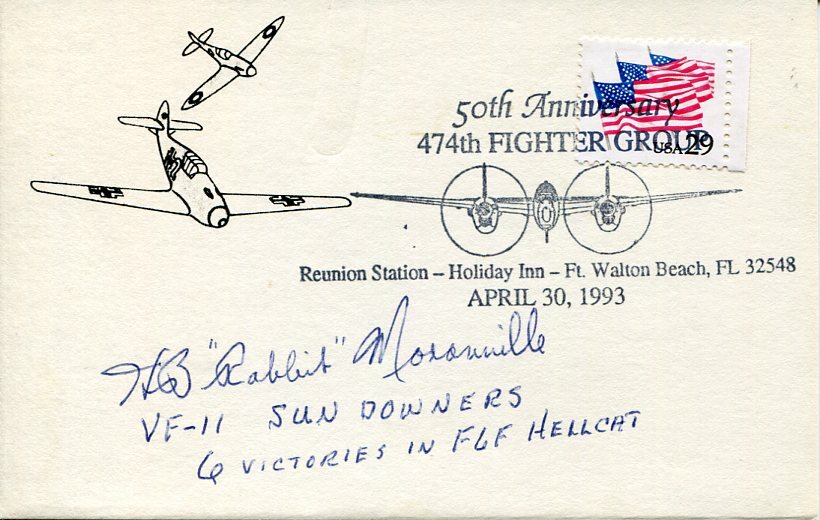 50th Anniversary
474th FIGHTER GROUP
USA 29
Reunion Station – Holiday Inn – Ft. Walton Beach, FL 32548
APRIL 30, 1993
HB "Rabbit" Moranville
VF-11 SUN DOWNERS
6 VICTORIES IN F6F HELLCAT